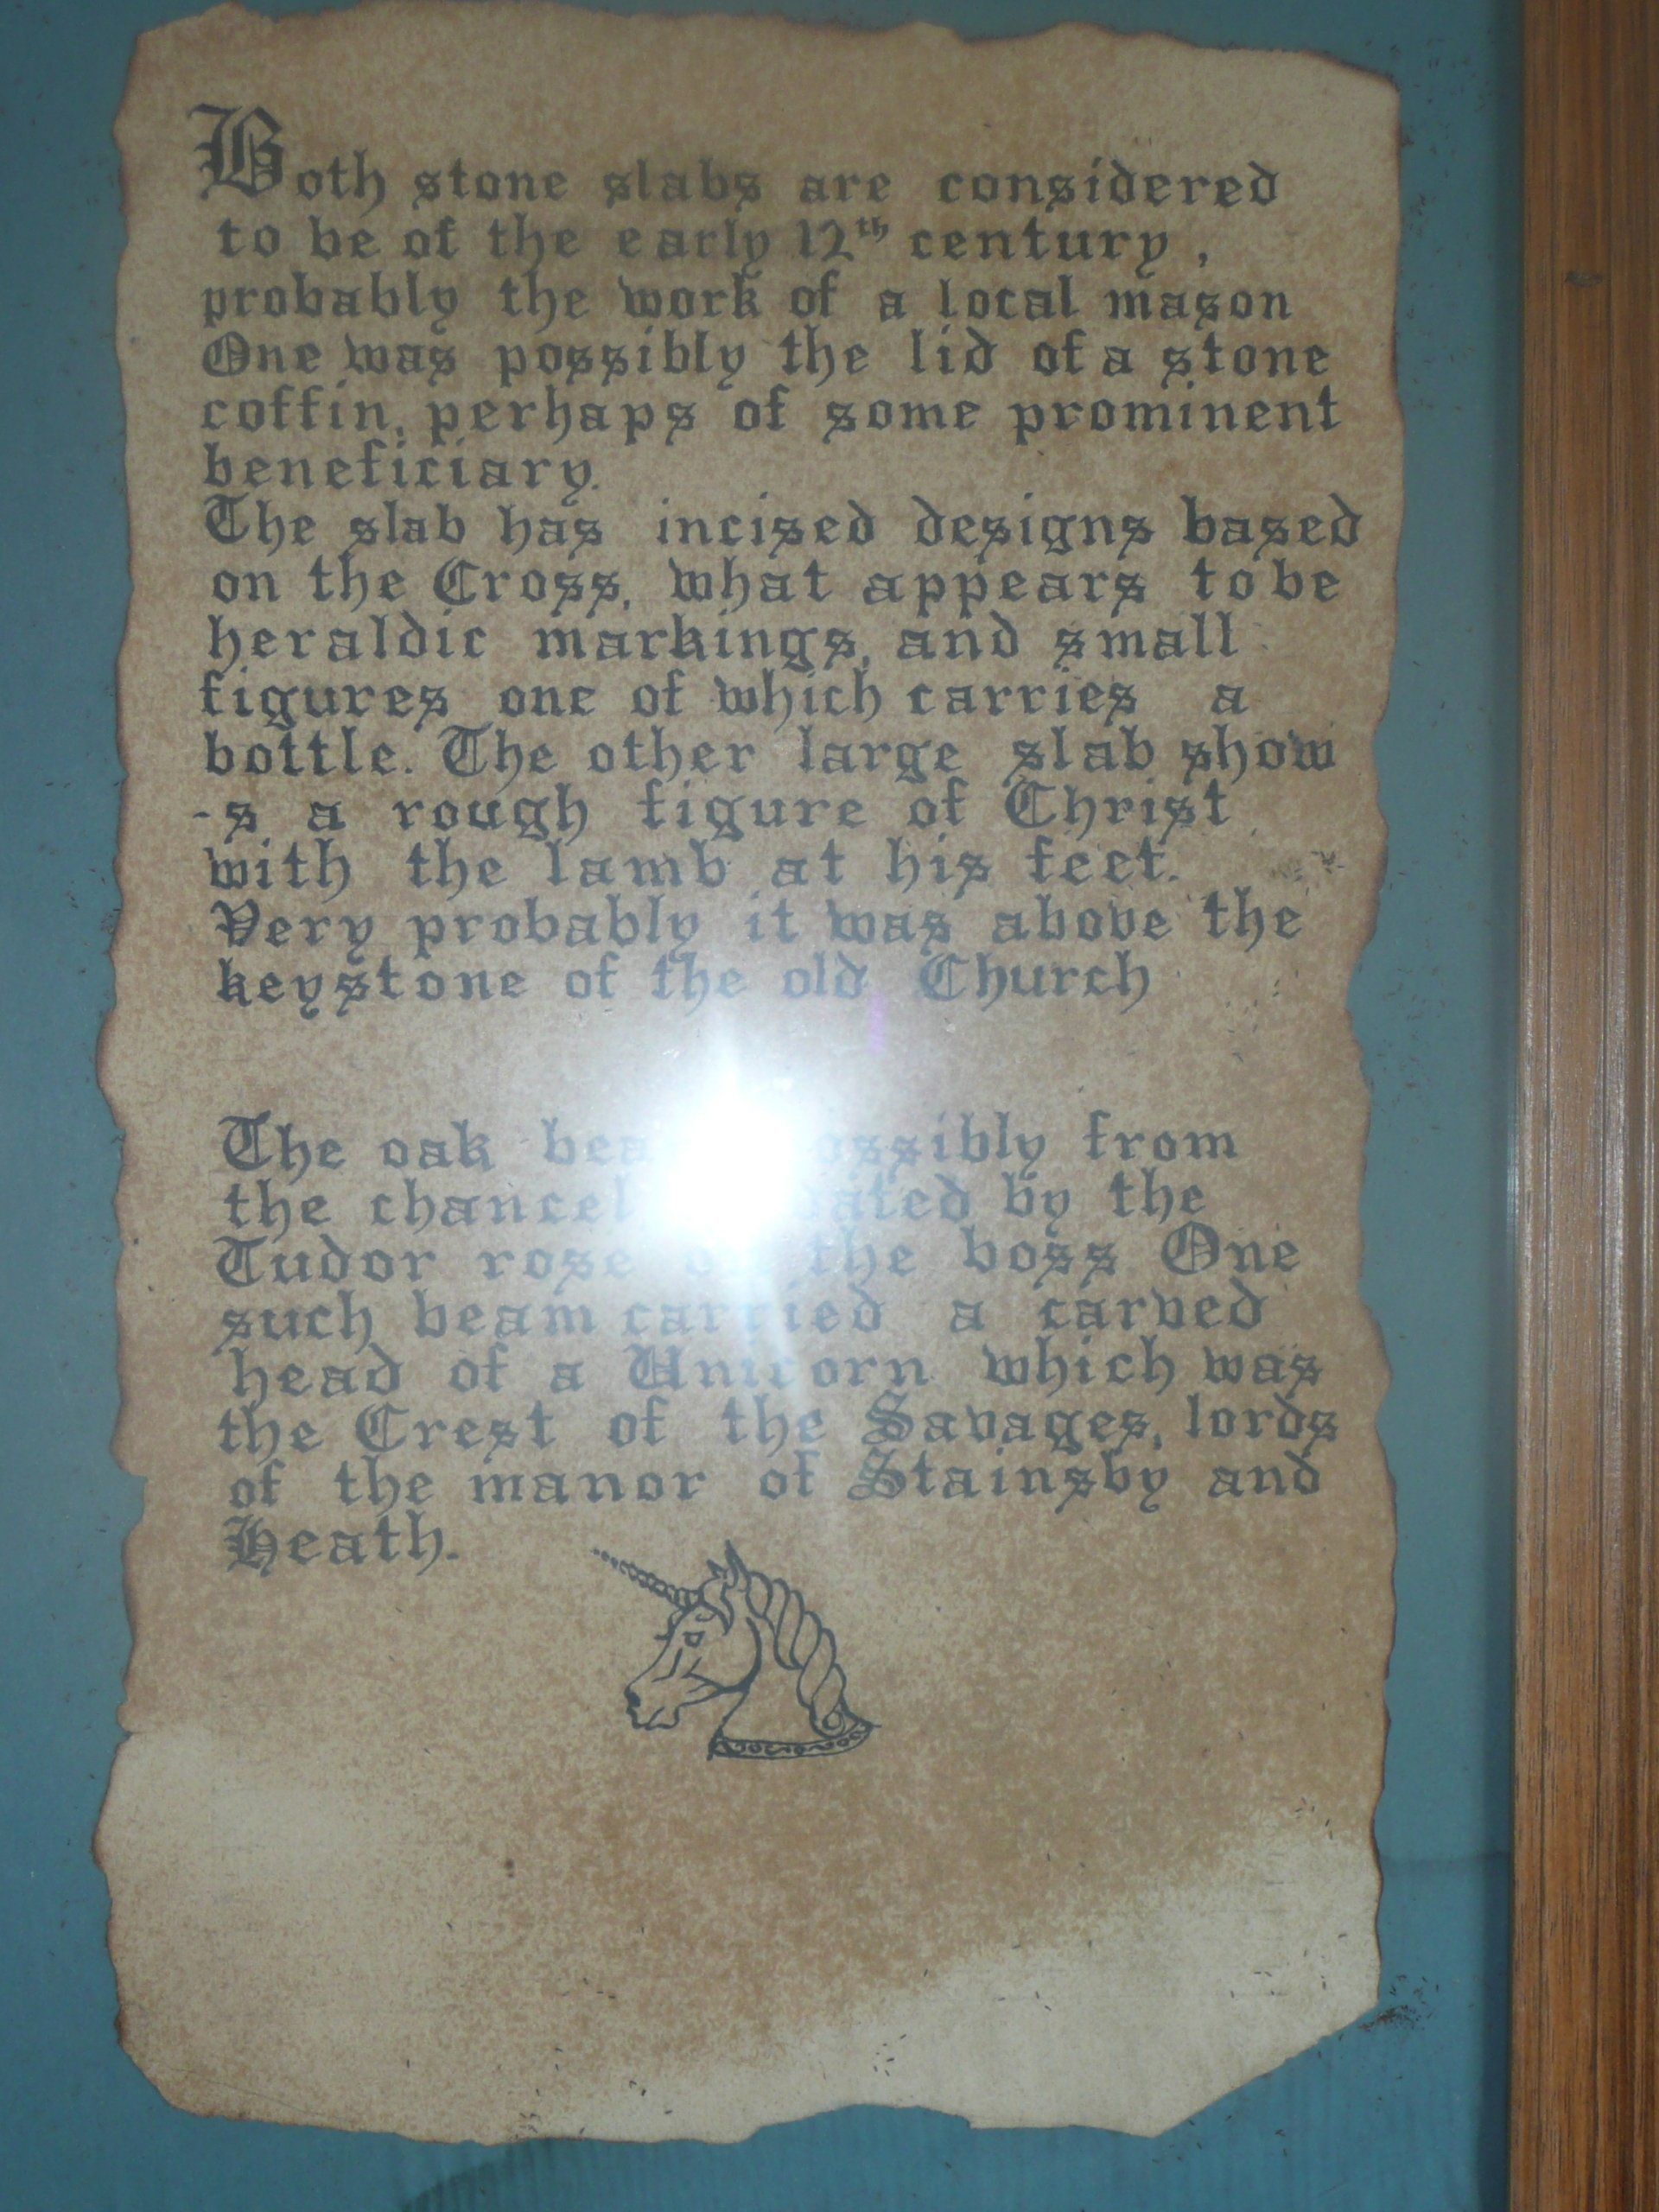 Both stone slabs are considered
to be of the early 12th century,
probably the work of a local mason
One was possibly the lid of a stone
coffin, perhaps of some prominent
beneficiary.
The slab has incised designs based
on the Cross, what appears to be
heraldic markings, and small
figures one of which carries a
bottle. The other large slab show
-s a rough figure of Christ
with the lamb at his feet.
Very probably it was above the
keystone of the old Church
The oak possibly from
the chancel dated by the
Tudor rose on the boss One
such beam carried a carved
head of a Unicorn which was
the Crest of the Savages, lords
of the manor of Stainsby and
Heath.